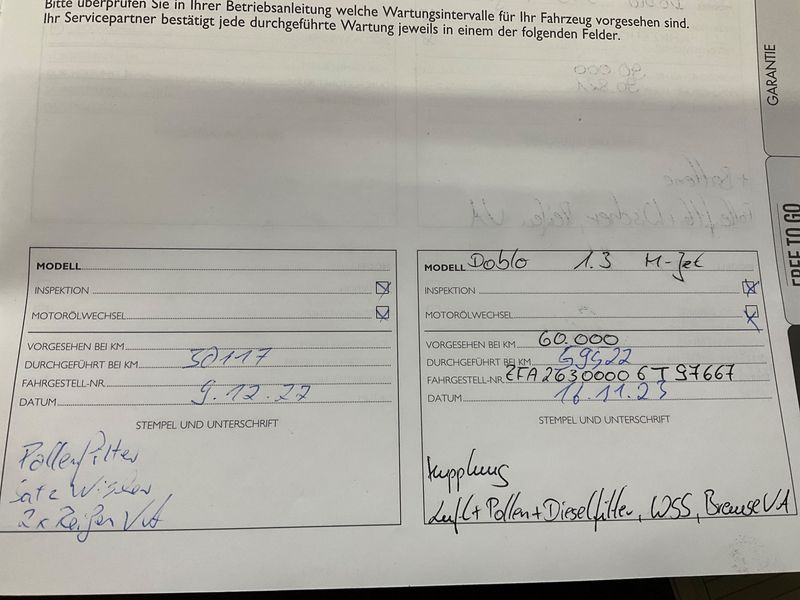 Bitte überprüfen Sie in Ihrer Betriebsanleitung welche Wartungsintervalle für Ihr Fahrzeug vorgesehen sind.
Ihr Servicepartner bestätigt jede durchgeführte Wartung jeweils in einem der folgenden Felder.
GARANTIE
FREE TO GO
MODELL
INSPEKTION
MOTORÖLWECHSEL
VORGESEHEN BEI KM
DURCHGEFÜHRT BEI KM 30117
FAHRGESTELL-NR.
DATUM 9.12.22
STEMPEL UND UNTERSCHRIFT
Pollenfilter
Satz Wischer
2x Reifen VA
MODELL Doblo 1.3 M-Jet
INSPEKTION
MOTORÖLWECHSEL
VORGESEHEN BEI KM 60.000
DURCHGEFÜHRT BEI KM 59522
FAHRGESTELL-NR. ZFA26300006T97667
DATUM 16.11.23
STEMPEL UND UNTERSCHRIFT
Kupplung
Luft+Pollen+Dieselfilter, WSS, Bremse VA